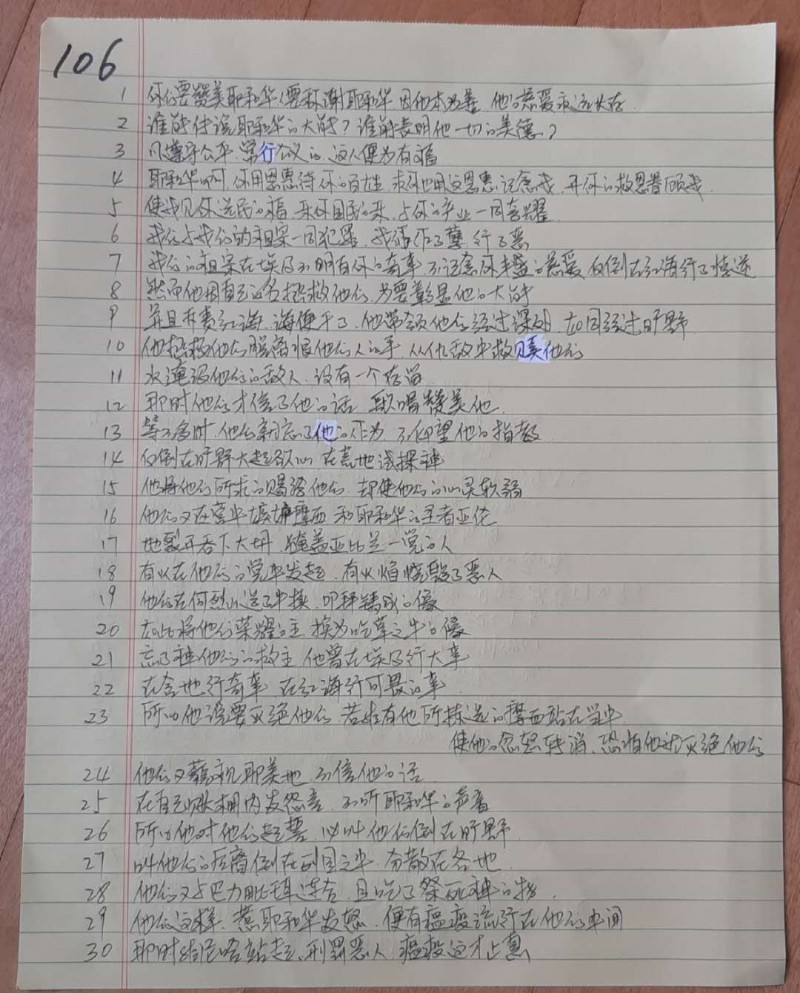 106
1 你们要赞美耶和华 要称谢耶和华 因他本为善 他的慈爱永远长存
2 谁能传说耶和华的大能? 谁能表明他一切的美德?
3 凡遵守公平 常行公义的 这人便为有福
4 耶和华啊 你用恩惠待你的百姓 求你也用这恩惠记念我 开你的救恩眷顾我
5 使我见你选民的福 乐你国民的乐 与你的产业一同夸耀
6 我们与我们的祖宗一同犯罪 我们作了孽 行了恶
7 我们的祖宗在埃及不明白你的奇事 不记念你丰盛的慈爱 反倒在红海行了悖逆
8 然而他因自己的名拯救他们 为要彰显他的大能
9 并且斥责红海 海便干了 他带领他们经过深处 如同经过旷野
10 他拯救他们脱离恨他们人的手 从仇敌手中救赎他们
11 水淹没他们的敌人 没有一个存留
12 那时他们才信了他的话 歌唱赞美他
13 等不多时 他们就忘了他的作为 不仰望他的指教
14 反倒在旷野大起欲心 在荒地试探神
15 他将他们所求的赐给他们 却使他们的心灵软弱
16 他们又在营中嫉妒摩西 和耶和华的圣者亚伦
17 地裂开吞下大坍 掩盖亚比兰一党的人
18 有火在他们的党中发起 有火焰烧毁了恶人
19 他们在何烈山造了牛犊 叩拜铸成的像
20 如此将他们荣耀的主 换为吃草之牛的像
21 忘了神他们的救主 他曾在埃及行大事
22 在含地行奇事 在红海行可畏的事
23 所以他说要灭绝他们 若非有他所拣选的摩西站在当中
使他的忿怒转消 恐怕他就灭绝他们
24 他们又藐视那美地 不信他的话
25 在自己帐棚内发怨言 不听耶和华的声音
26 所以他对他们起誓 必叫他们倒在旷野
27 叫他们的后裔倒在列国之中 分散在各地
28 他们又与巴力毗珥连合 且吃了祭死神的物
29 他们这样 惹耶和华发怒 便有瘟疫流行在他们中间
30 那时非尼哈站起 刑罚恶人 瘟疫这才止息